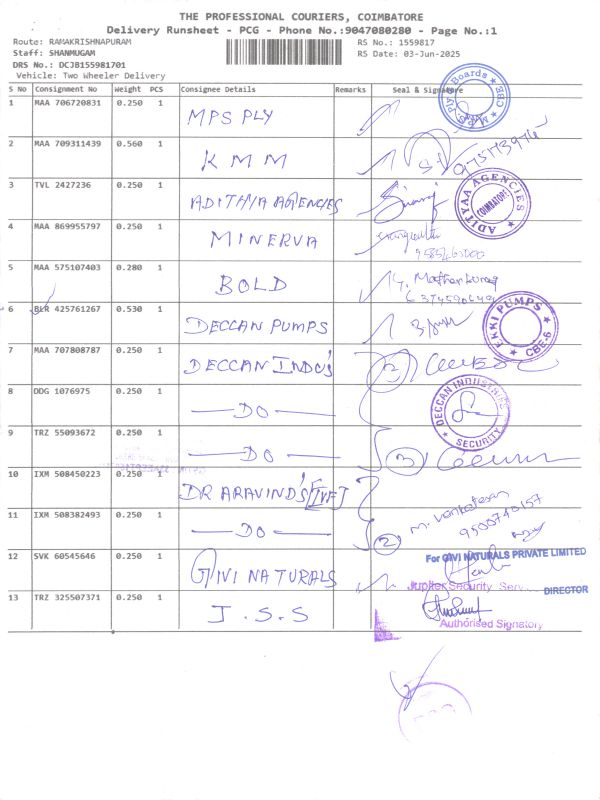 THE PROFESSIONAL COURIERS, COIMBATORE
Delivery Runsheet - PCG - Phone No.:9047080280 - Page No.:1
Route: RAMAKRISHNAPURAM RS No.: 1559817
Staff: SHANMUGAM RS Date: 03-Jun-2025
DRS No.: DCJB155981701
Vehicle: Two Wheeler Delivery
S No Consignment No Weight PCS Consignee Details Remarks Seal & Signature
1 MAA 706720831 0.250 1 MPS PLY
M.P.S Ply Boards CBE
2 MAA 709311439 0.560 1 KMM
3 TVL 2427236 0.250 1 ADITHIA AGENCIES
ADITYAA AGENCIES COIMBATORE
4 MAA 869955797 0.250 1 MINERVA
5 MAA 575107403 0.280 1 BOLD
6 BLR 425761267 0.530 1 DECCAN PUMPS
EKKI PUMPS CBE-6
7 MAA 707808787 0.250 1 DECCAN INDU'S
8 DDG 1076975 0.250 1 DO
DECCAN INDUSTRIES SECURITY
9 TRZ 55093672 0.250 1 DO
10 IXM 508450223 0.250 1 DR ARAVIND'S [IVF]
11 IXM 508382493 0.250 1 DO
2 M. Venkatesan
9500740157
12 SVK 60545646 0.250 1 GIVI NATURALS
For GIVI NATURALS PRIVATE LIMITED
DIRECTOR
13 TRZ 325507371 0.250 1 J.S.S
Jupiter Security Serv
Authorised Signatory